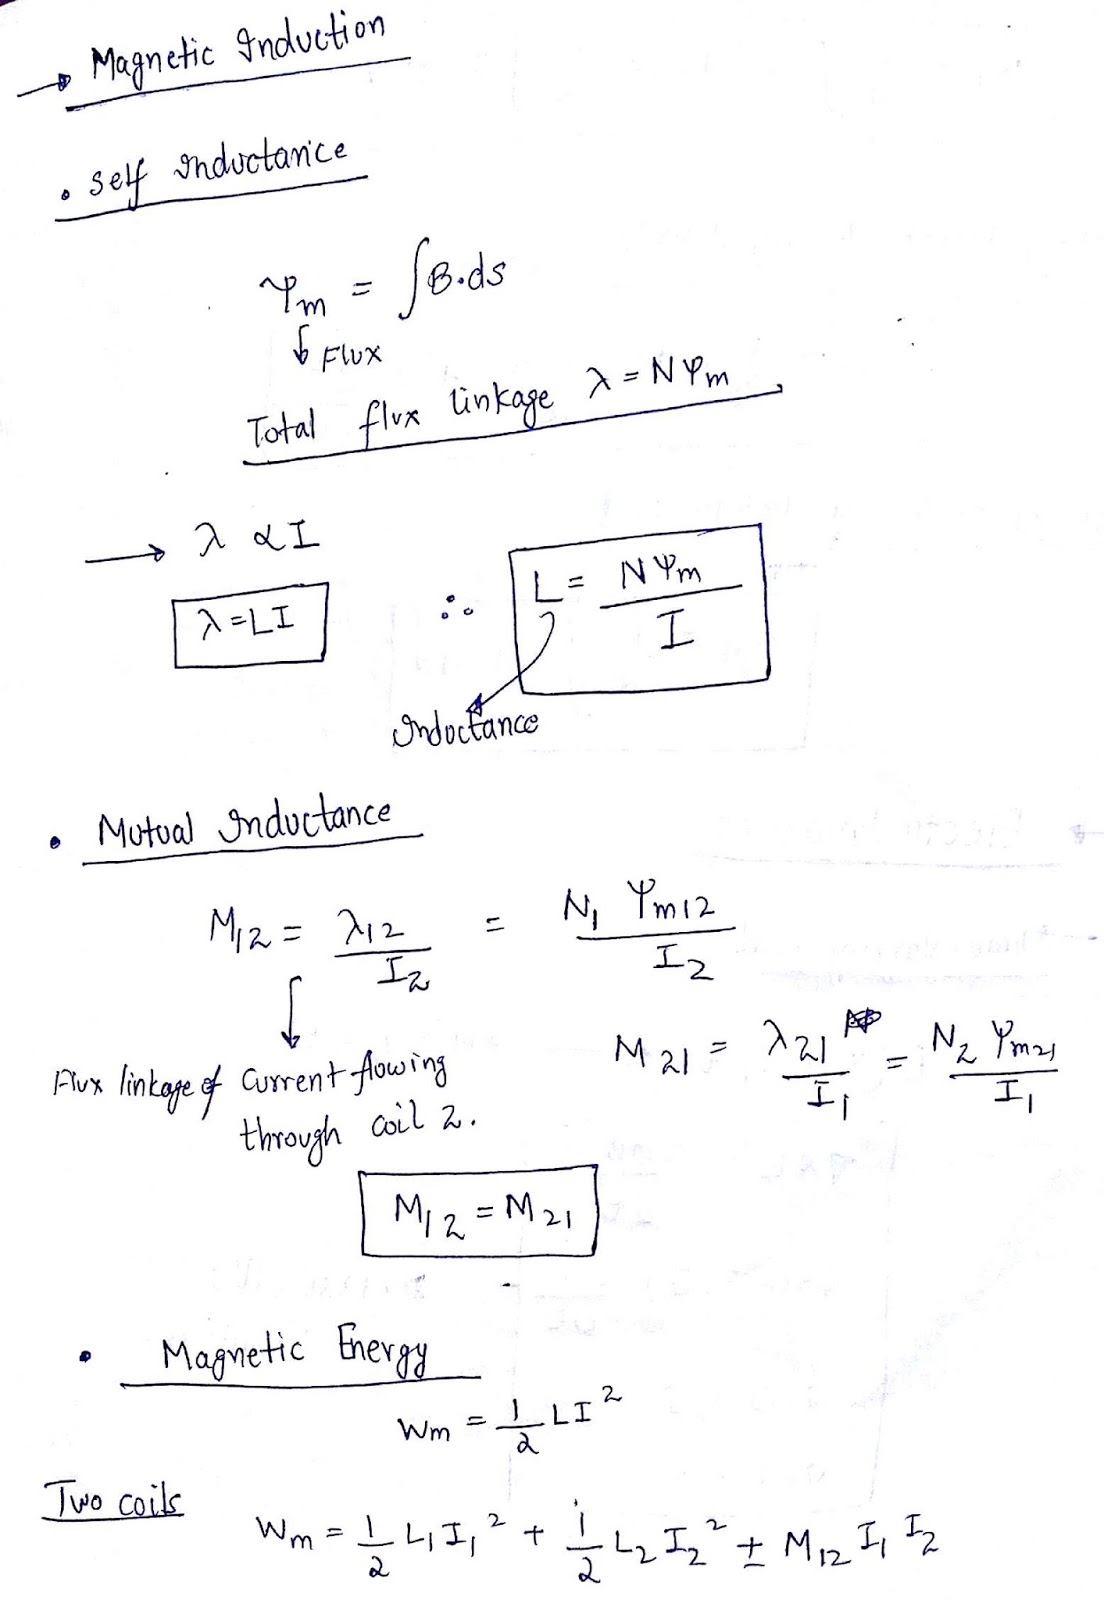 → Magnetic Induction
• Self Inductance
Ψm = ∫B.ds
↓ Flux
Total flux linkage λ = NΨm
→ λ ∝ I
λ = LI ∴ L = NΨm / I
Inductance
• Mutual Inductance
M12 = λ12 / I2 = N1 Ψm12 / I2
M21 = λ21 / I1 = N2 Ψm21 / I1
Flux linkage of current flowing
through coil 2.
M12 = M21
• Magnetic Energy
Wm = 1/2 LI²
Two coils
Wm = 1/2 L1 I1² + 1/2 L2 I2² ± M12 I1 I2